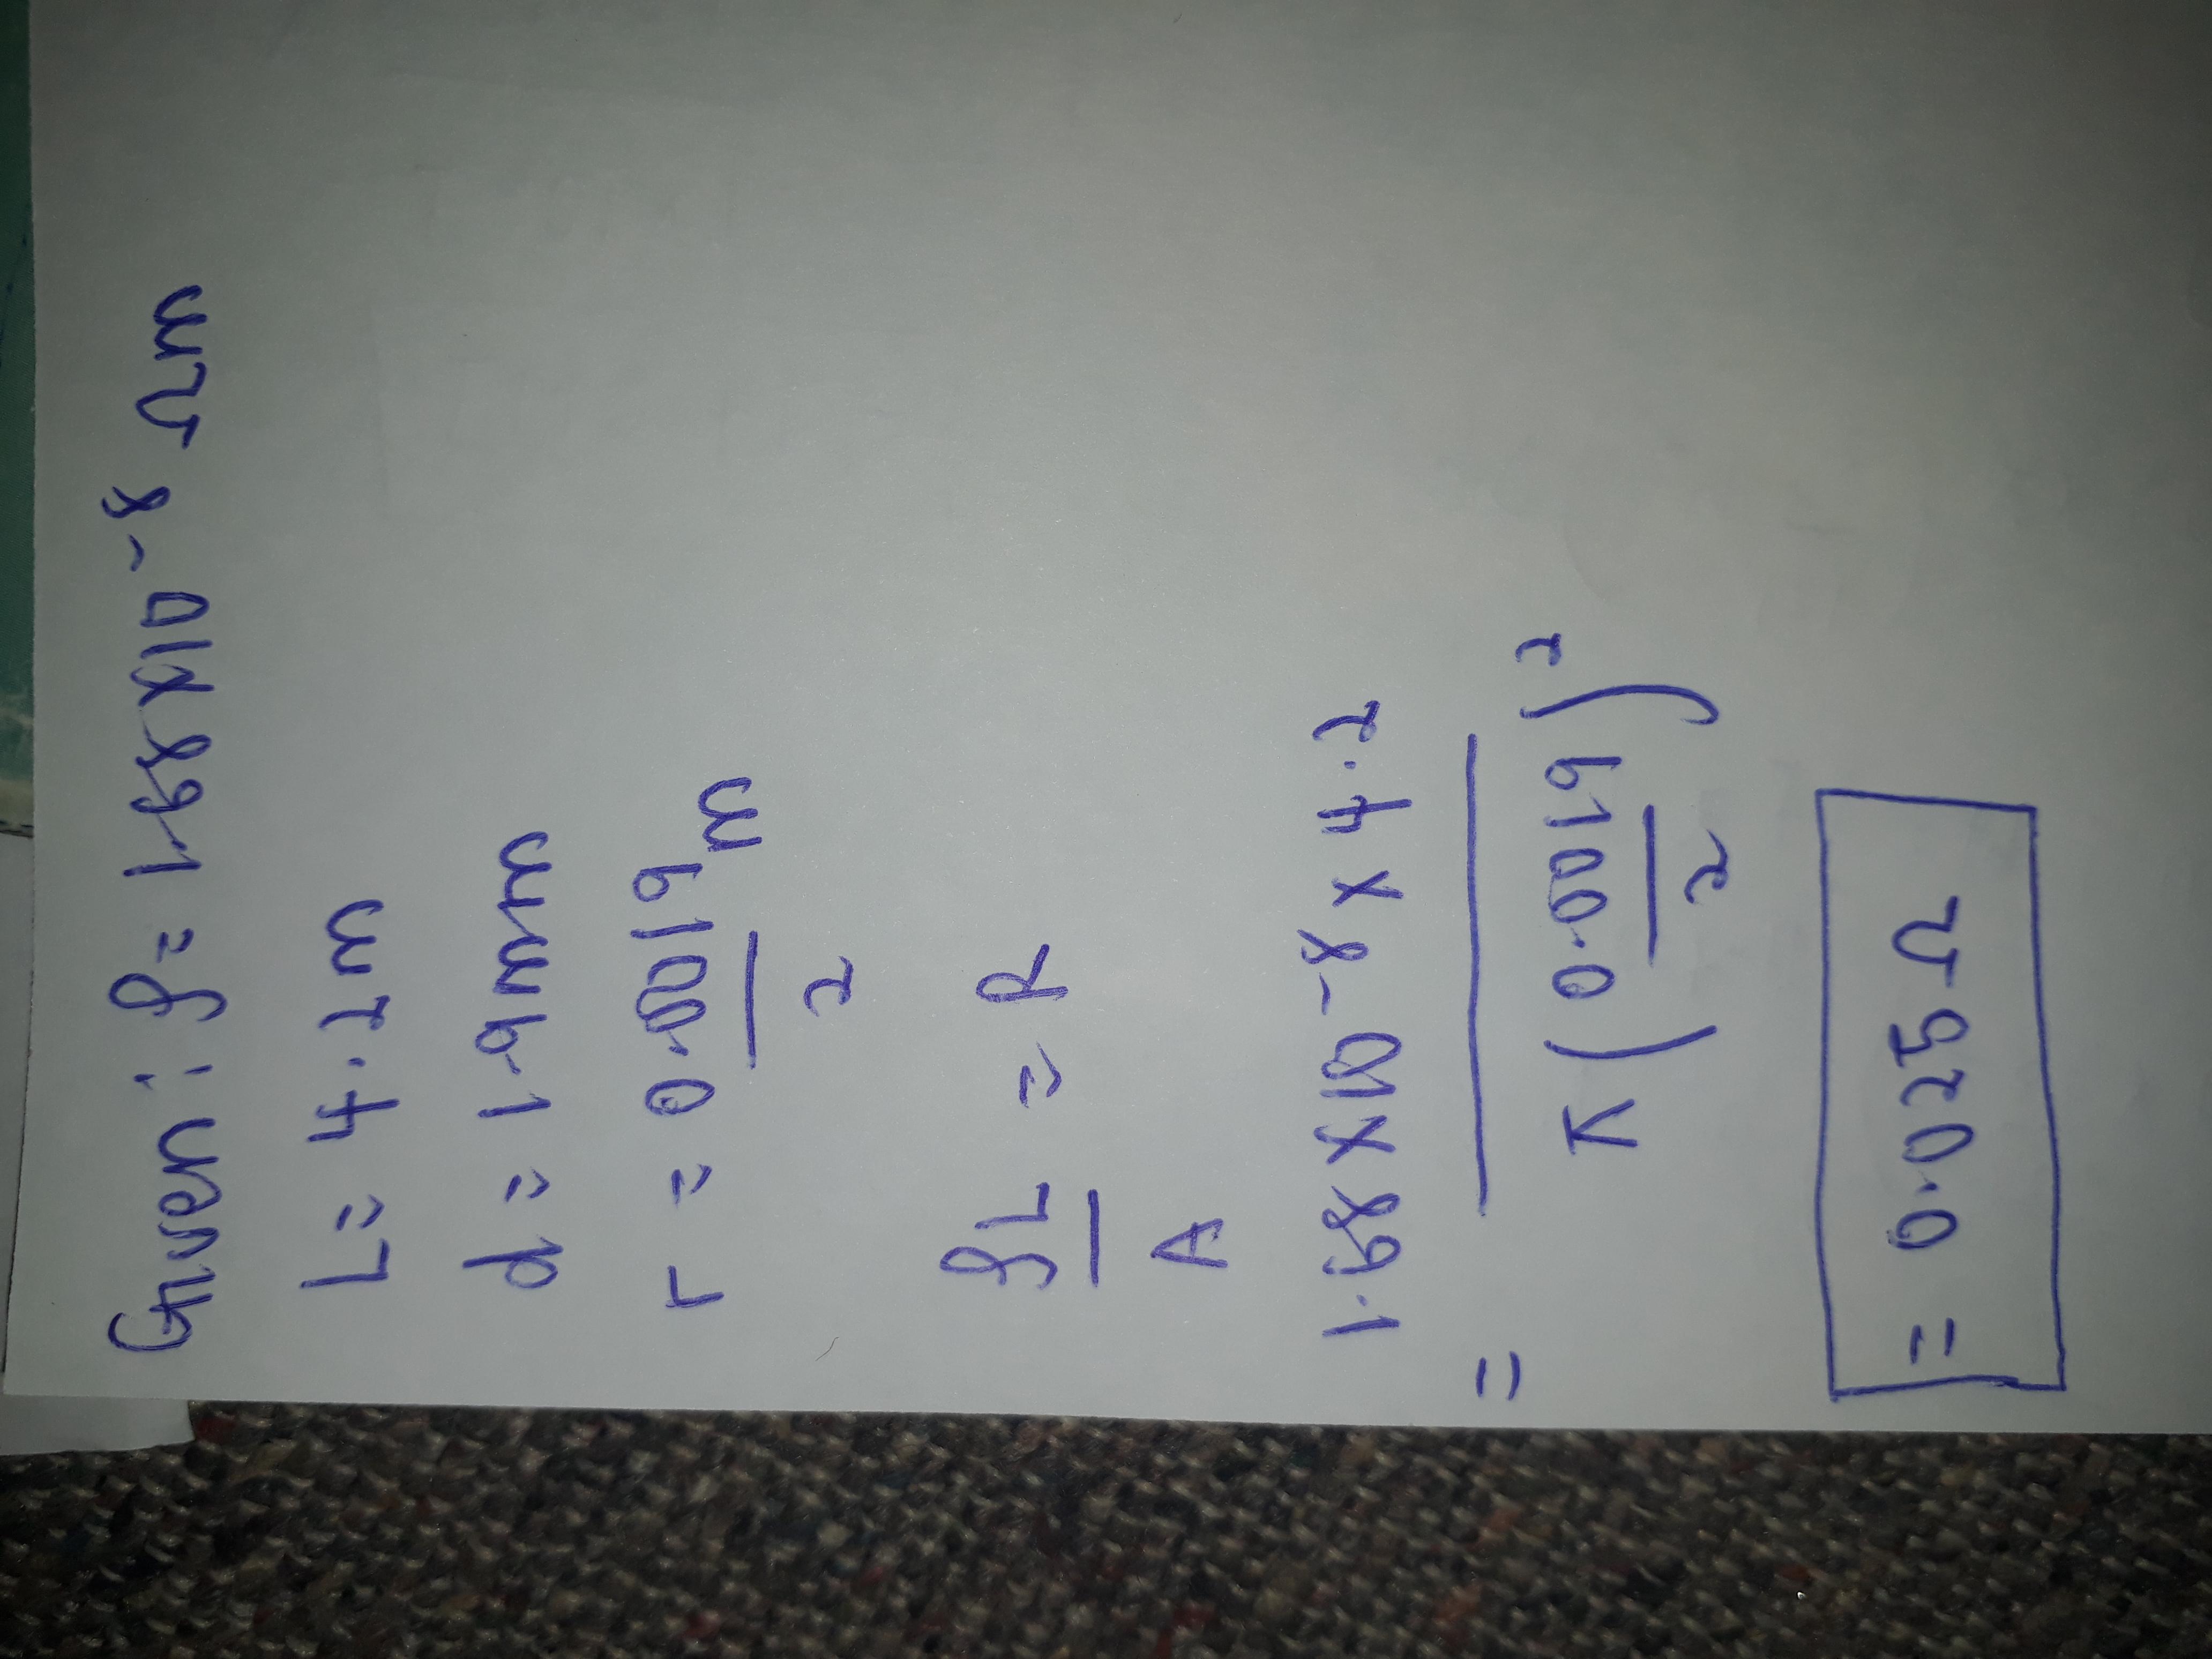 Given : ρ = 1.68 x 10⁻⁸ Ωm
L = 4.2 m
d = 1.9 mm
r = 0.0019/2 m
ρL/A = R
= 1.68 x 10⁻⁸ x 4.2 / π (0.0019/2)²
= 0.025 Ω